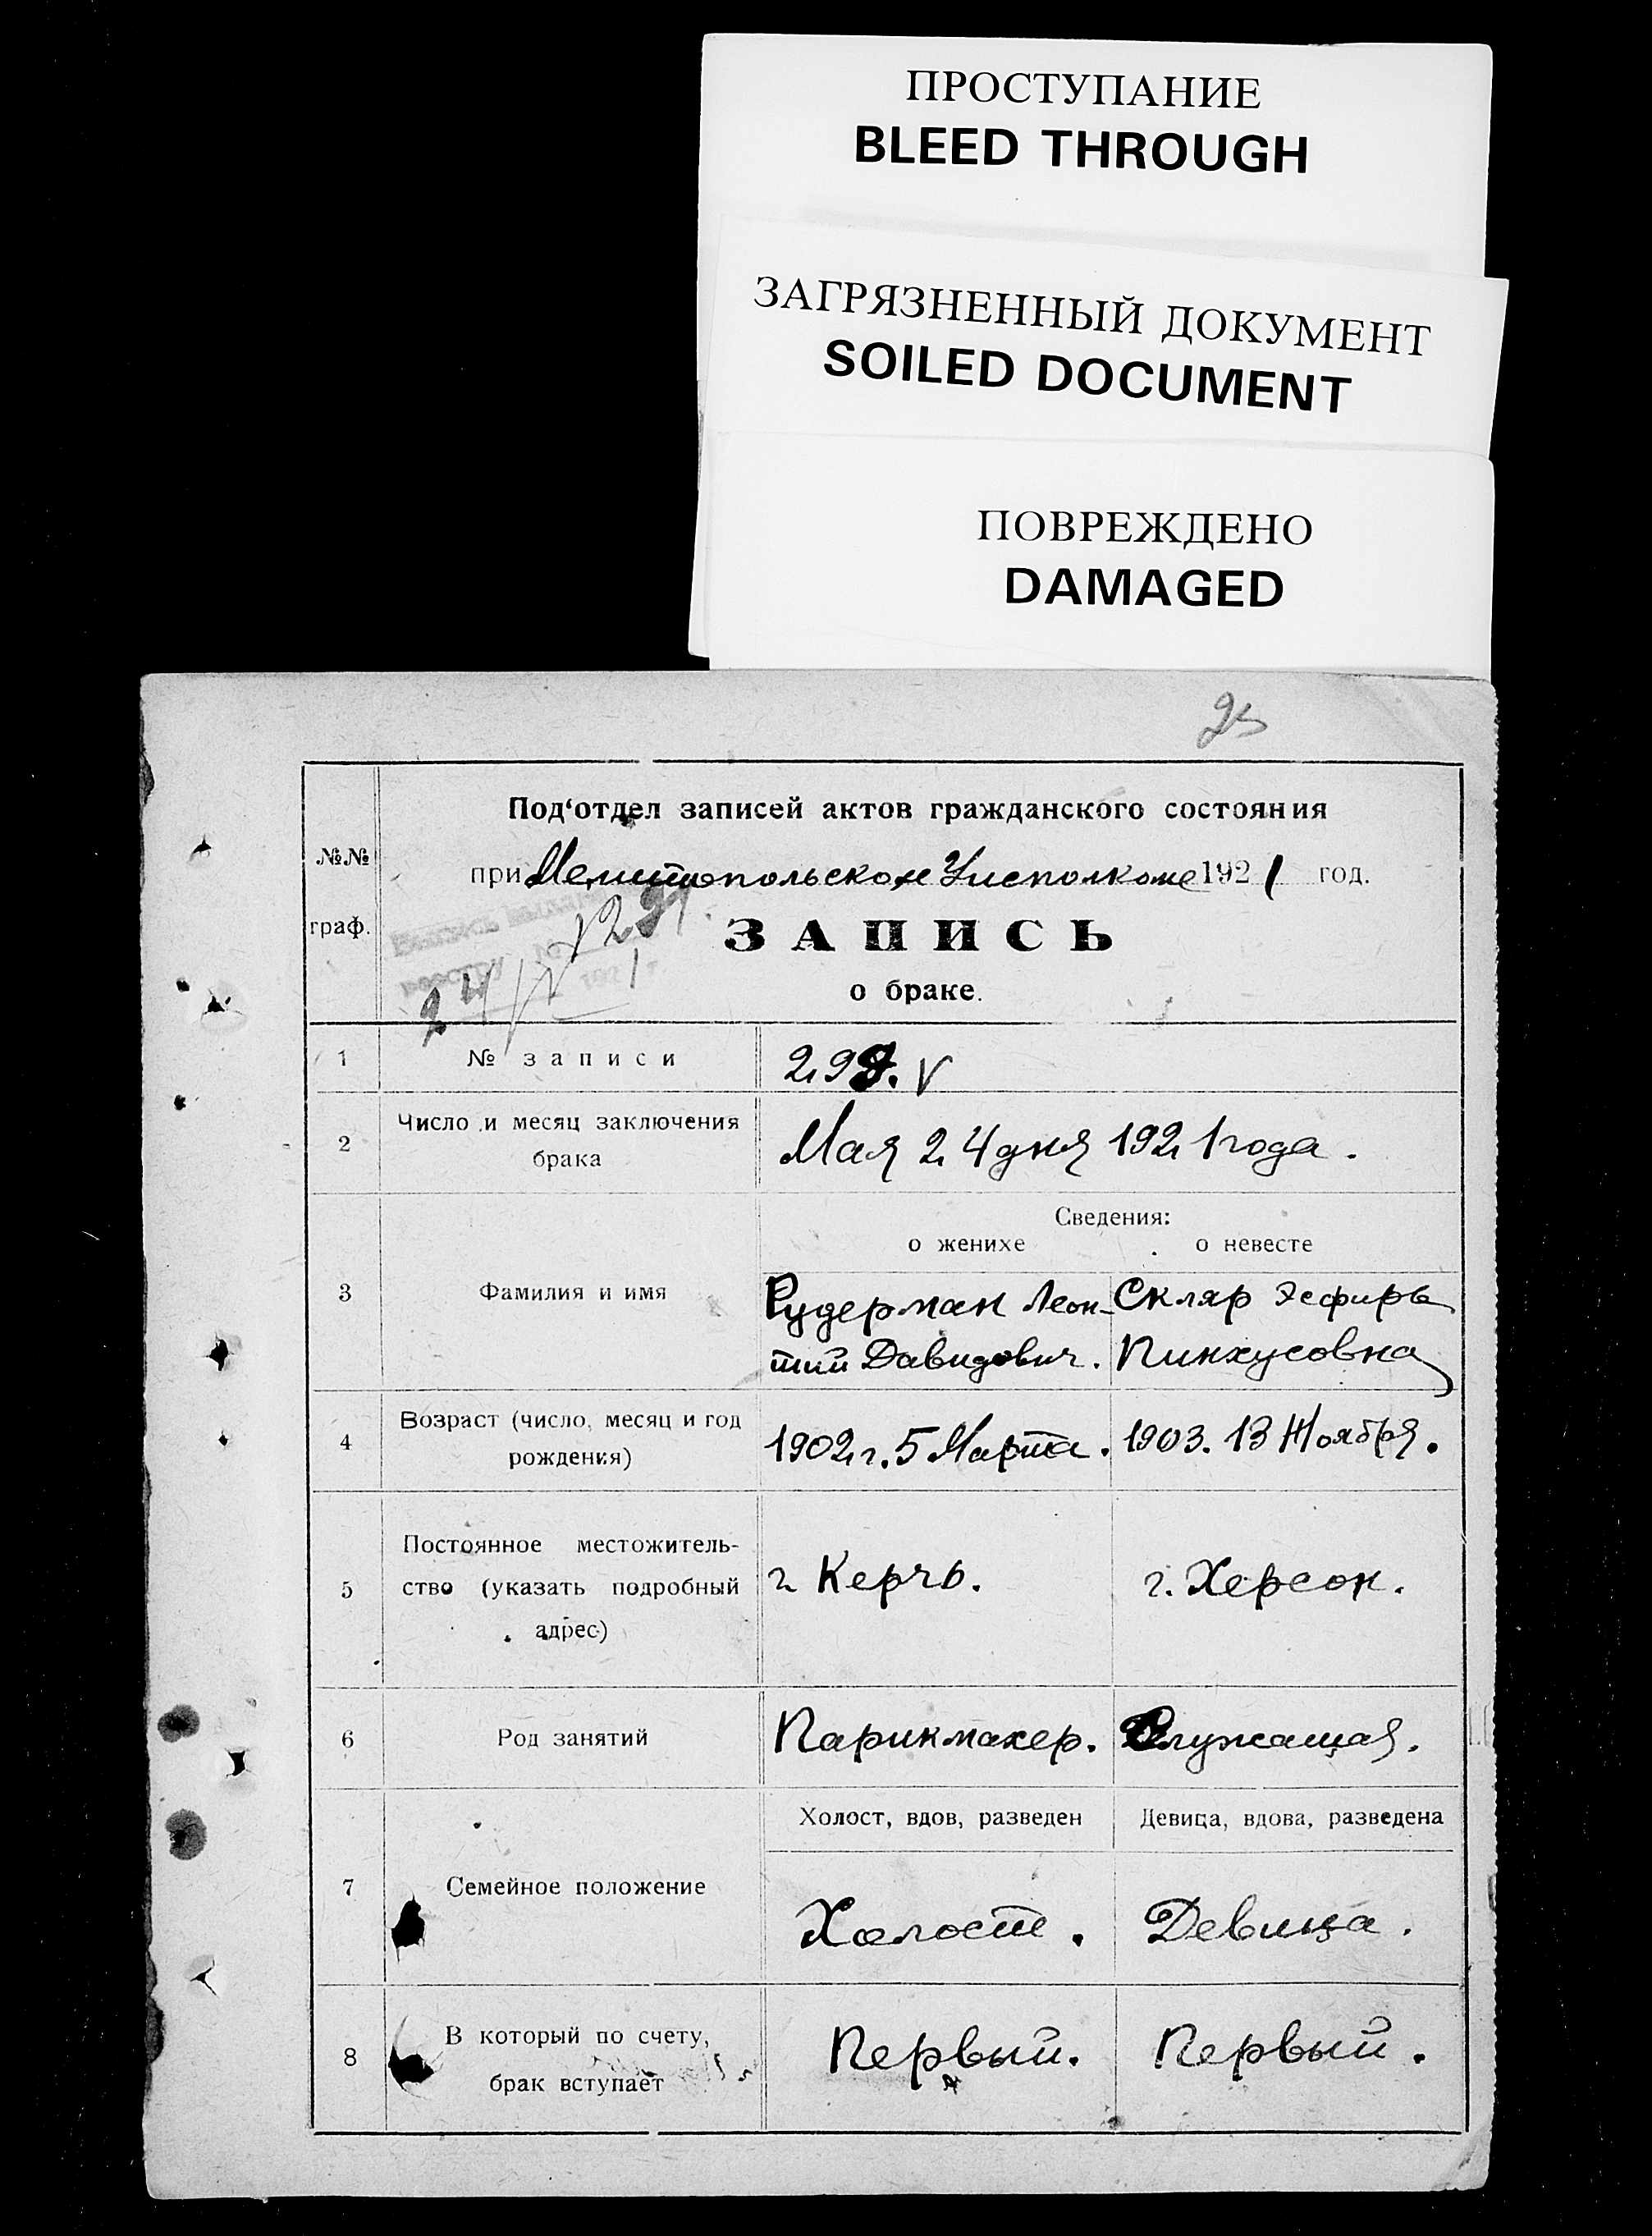 ПРОСТУПАНИЕ
BLEED THROUGH
ЗАГРЯЗНЕННЫЙ ДОКУМЕНТ
SOILED DOCUMENT
ПОВРЕЖДЕНО
DAMAGED
25
№№ граф.
Под‘отдел записей актов гражданского состояния
при Мелитопольском Уисполкоме 1921 год.
ЗАПИСЬ
о браке.
1 № записи 299. V
2 Число и месяц заключения
брака
Мая 24 дня 1921 года.
Сведения:
о женихе о невесте
3 Фамилия и имя
Рудерман Леон-
тий Давидович.
Скляр Эсфирь
Пинхусовна
4 Возраст (число, месяц и год
рождения)
1902 г. 5 Марта. 1903. 13 Ноября.
5 Постоянное местожитель-
ство (указать подробный
адрес)
г Керчь. г. Херсон.
6 Род занятий Парикмахер. Служащая.
Холост, вдов, разведен Девица, вдова, разведена
7 Семейное положение
Холост. Девица.
8 В который по счету,
брак вступает
Первый. Первый.